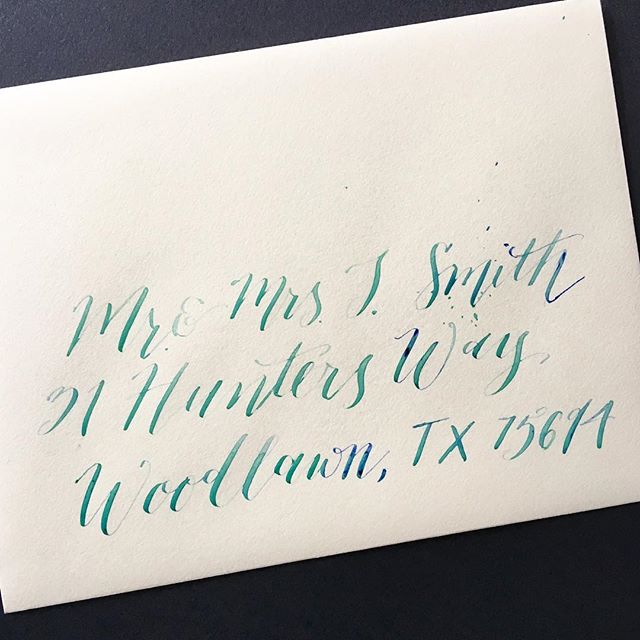 Mr. & Mrs. T. Smith
21 Hunters Way,
Woodlawn, TX 75694